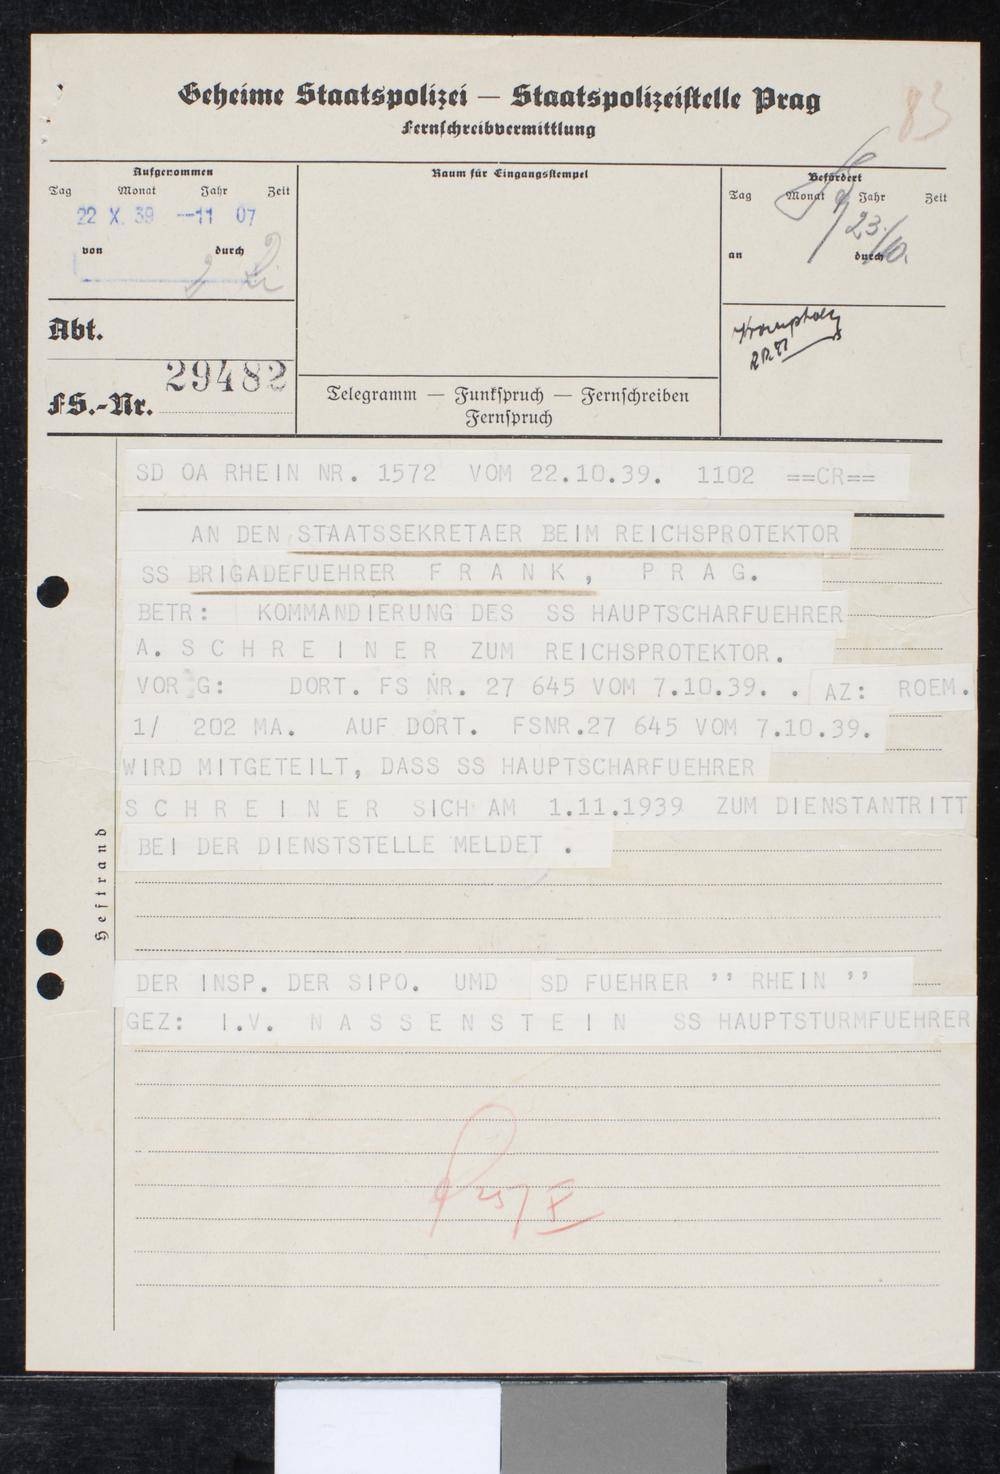 Geheime Staatspolizei — Staatspolizeistelle Prag
83
Fernschreibvermittlung
Aufgenommen
Tag Monat Jahr Zeit
22 X. 39 --11 07
von durch
Raum für Eingangsstempel
Befördert
Tag Monat Jahr Zeit
23./10.
an durch
Abt.
FS.-Nr. 29482
Telegramm — Funkspruch — Fernschreiben
Fernspruch
SD OA RHEIN NR. 1572 VOM 22.10.39. 1102 ==CR==
AN DEN STAATSSEKRETAER BEIM REICHSPROTEKTOR
SS BRIGADEFUEHRER F R A N K , P R A G.
BETR: KOMMANDIERUNG DES SS HAUPTSCHARFUEHRER
A. S C H R E I N E R ZUM REICHSPROTEKTOR.
VOR G: DORT. FS NR. 27 645 VOM 7.10.39. . AZ: ROEM.
1/ 202 MA. AUF DORT. FSNR.27 645 VOM 7.10.39.
WIRD MITGETEILT, DASS SS HAUPTSCHARFUEHRER
S C H R E I N E R SICH AM 1.11.1939 ZUM DIENSTANTRITT
BEI DER DIENSTSTELLE MELDET .
Heftrand
DER INSP. DER SIPO. UMD SD FUEHRER ’’ RHEIN ’’
GEZ: I.V. N A S S E N S T E I N SS HAUPTSTURMFUEHRER